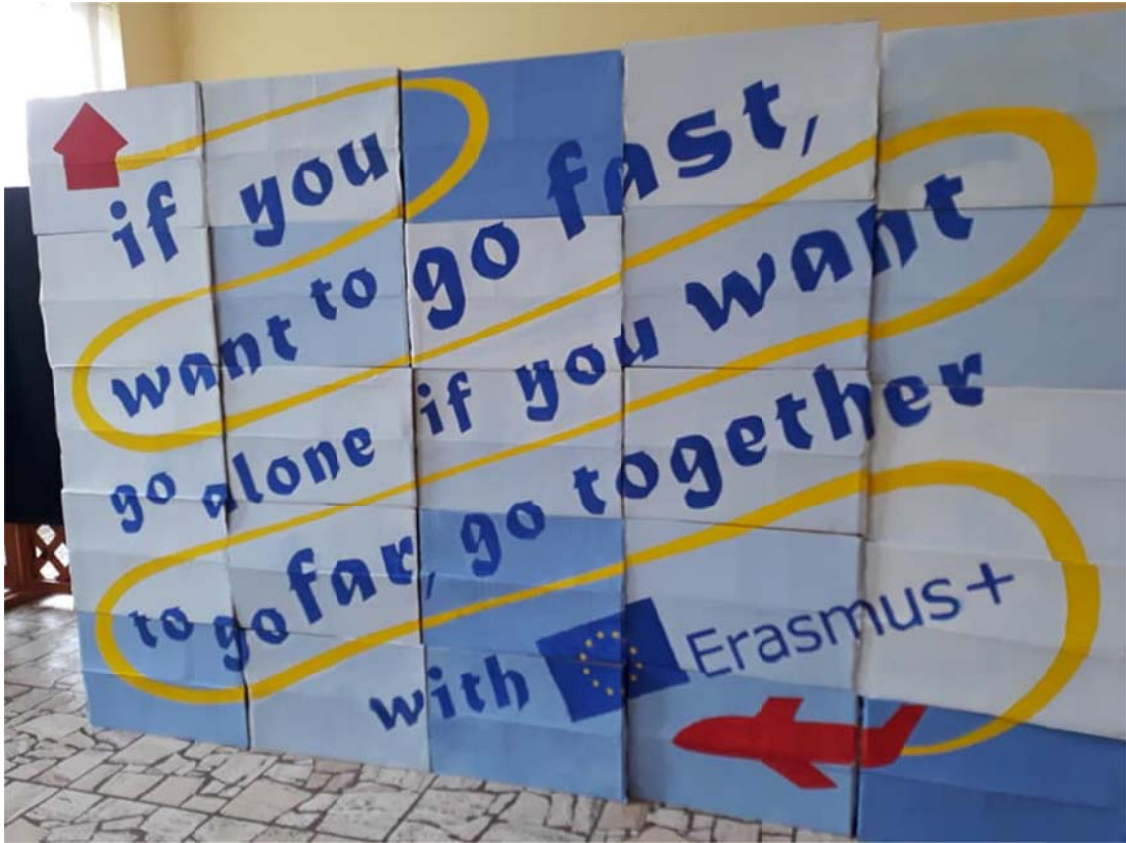 if you
want to go fast,
go alone if you want
to go far, go together
with Erasmus+